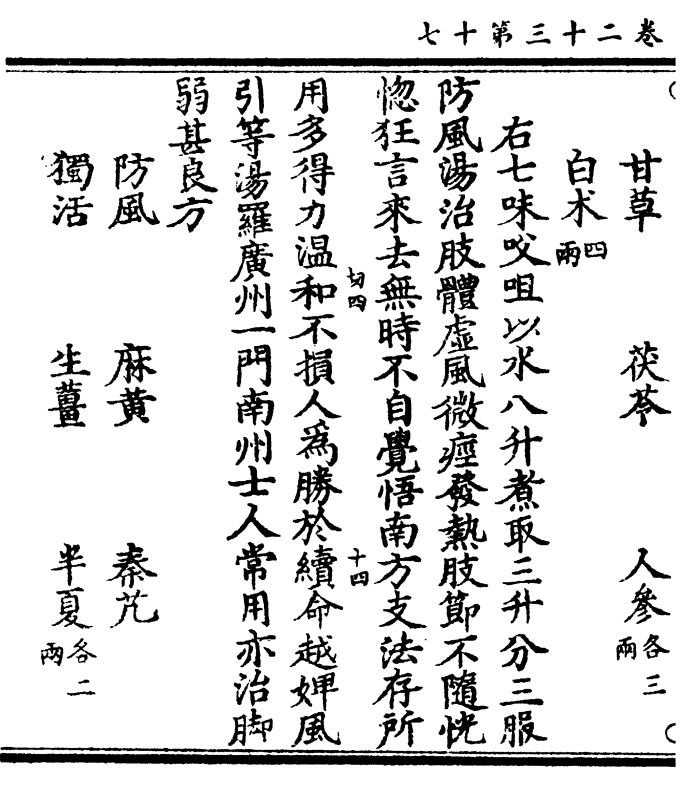 卷二十三第十七
甘草　茯苓　人參各三兩
白术四兩
右七味㕮咀以水八升煮取三升分三服
防風湯治肢體虛風微痙發熱肢節不隨恍
惚狂言來去無時不自覺悟南方支法存所
切四
十四
用多得力温和不損人爲勝於續命越婢風
引等湯羅廣州一門南州士人常用亦治脚
弱甚良方
防風　麻黄　秦艽
獨活　生薑　半夏各二兩